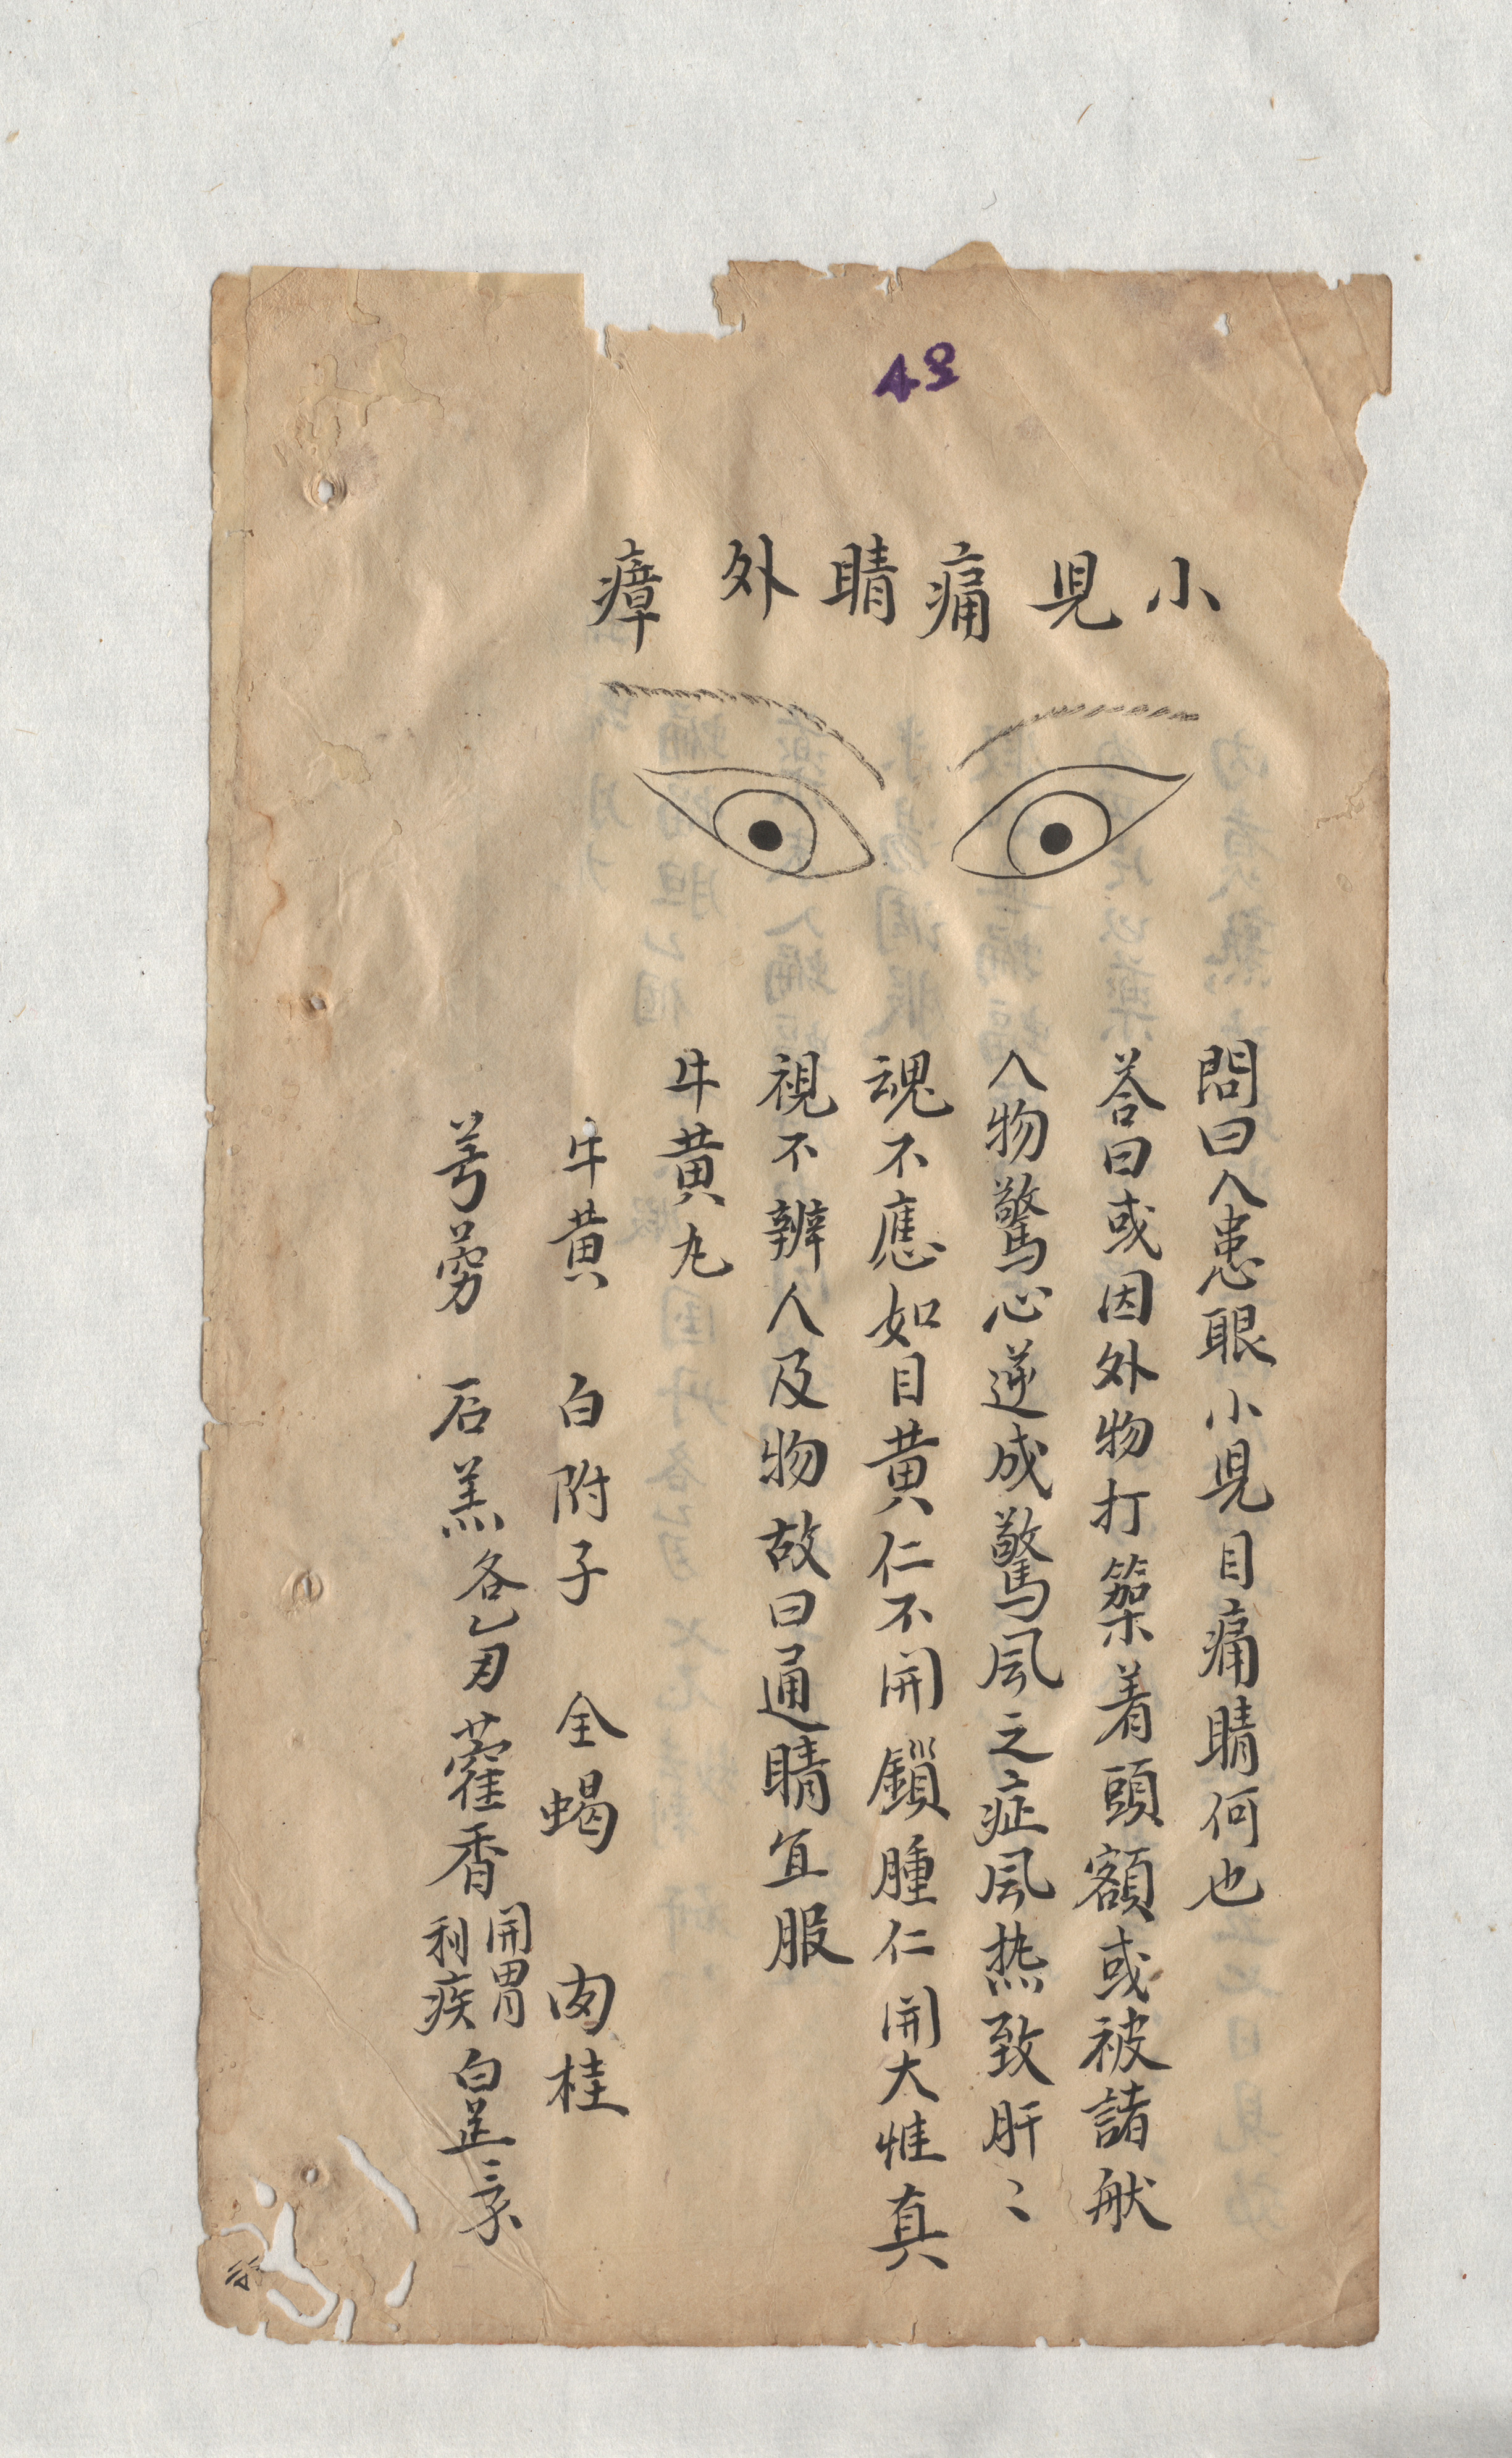 43
小児痛睛外瘴
問曰人患眼小児目痛睛何也
荅曰或因外物打築着頭額或被諸般
人物驚心逆成驚风之症风热致肝〻
魂不應如目黄仁不開鎖腫仁開大惟真
視不辨人及物故曰通睛宜服
牛黄丸
牛黄 白附子 全蝎 肉桂
芎藭 石羔各乙 藿香開胃利疾白芷